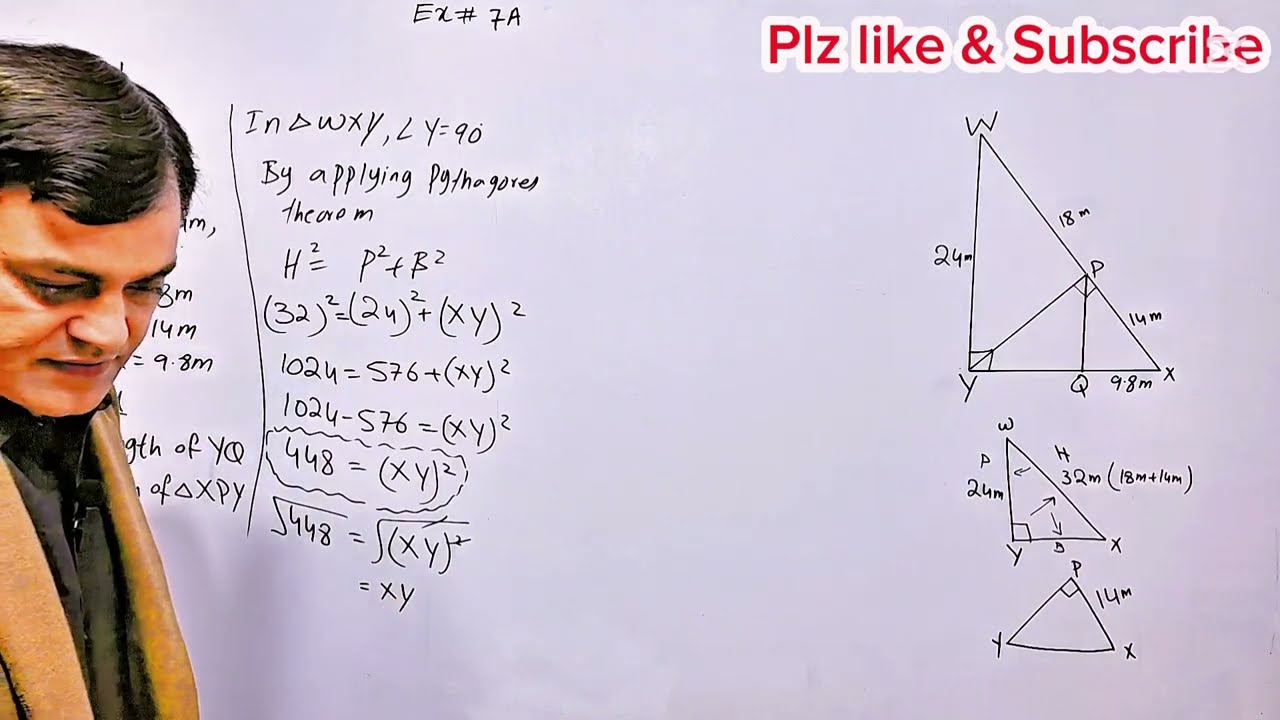 Ex# 7A
Plz like & Subscribe
m,
3m
14m
= 9.8m
gth of YQ
of △XPY
In △WXY, ∠Y=90°
By applying Pythagores
theorom
H² = P²+B²
(32)²=(24)²+(XY)²
1024=576+(XY)²
1024-576=(XY)²
448 = (XY)²
√448 = √(XY)²
= XY
W
18m
24m
P
14m
Y
Q
9.8m
X
W
P
H
24m
32m (18m+14m)
Y
B
X
P
14m
Y
X